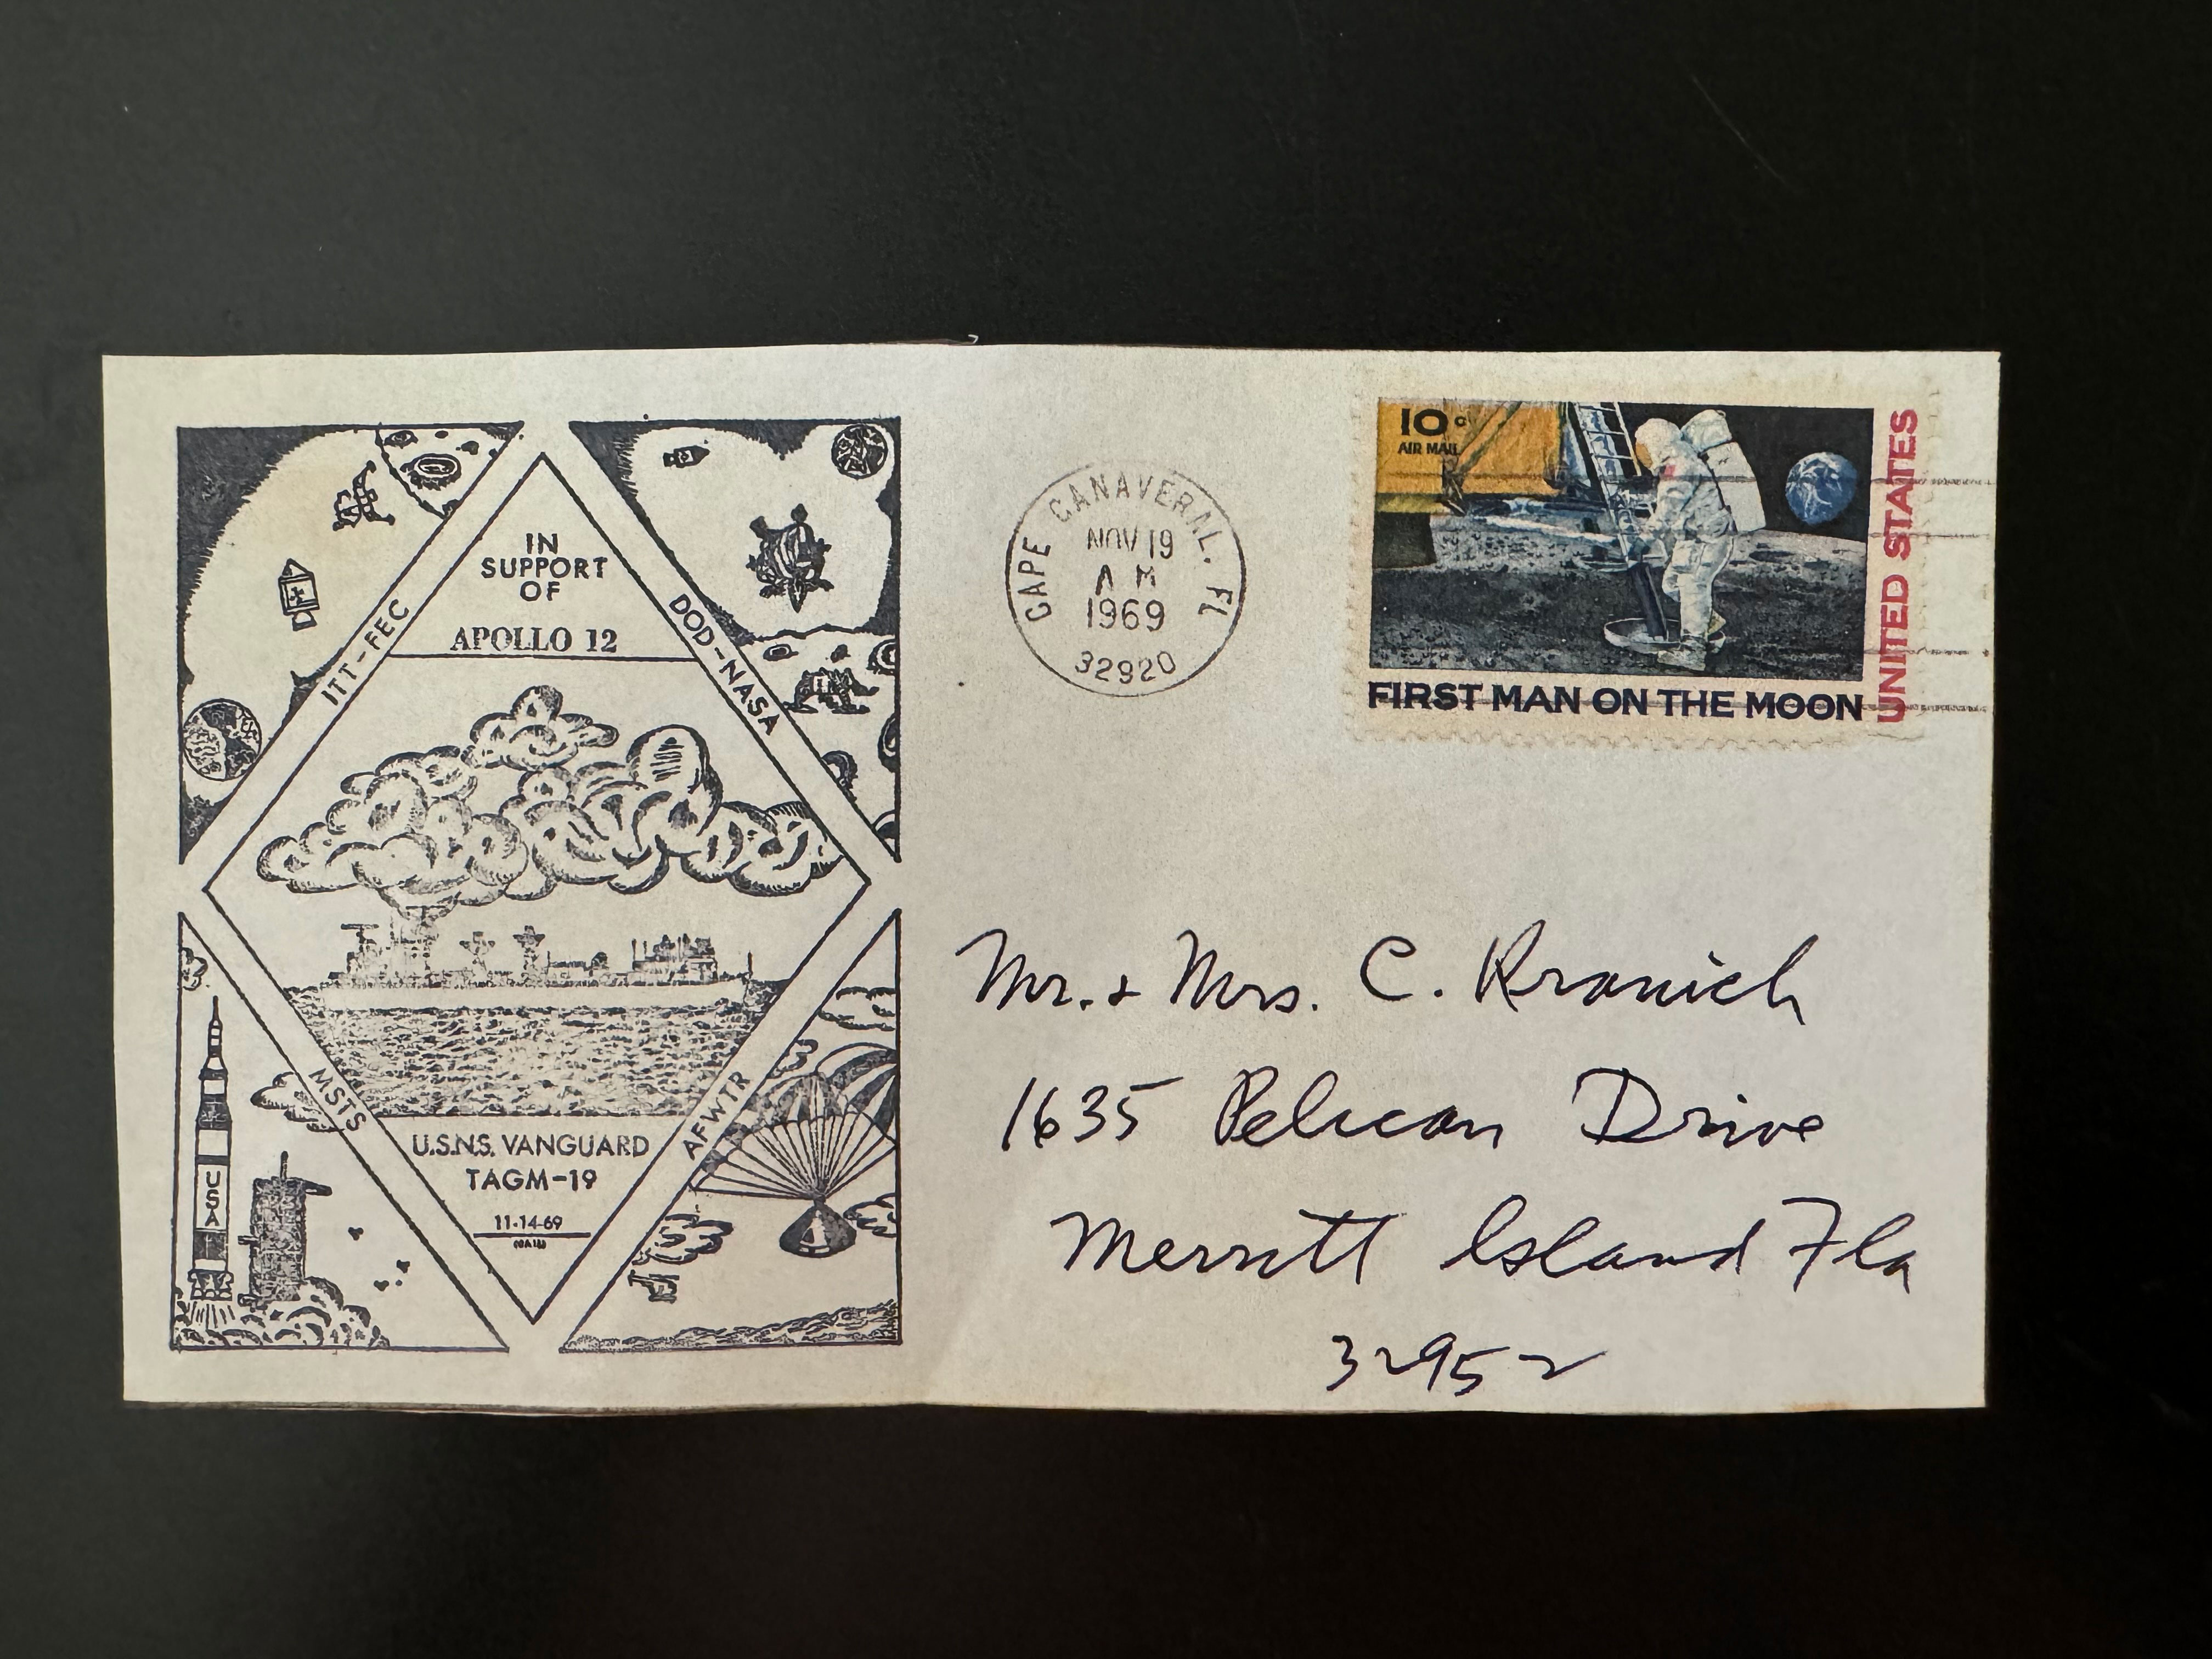 IN
SUPPORT
OF
APOLLO 12
ITT-FEC
DOD-NASA
MSTS
AFWTR
U.S.N.S. VANGUARD
TAGM-19
11-14-69
USA
CAPE CANAVERAL, FL
NOV 19
AM
1969
32920
10c
AIR MAIL
UNITED STATES
FIRST MAN ON THE MOON
Mr. & Mrs. C. Kranich
1635 Pelican Drive
Merritt Island Fla
32952